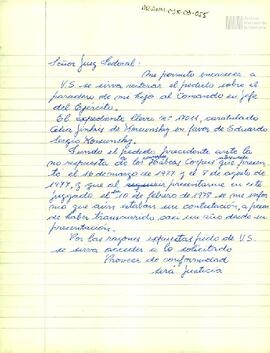 Señor Juez Federal:
Me permito encarecer a
V.S. se sirva reiterar el pedido sobre el
paradero de mi hijo al Comando en Jefe
del Ejército.
El expediente lleva n° 17011 caratulado
Celia Jinkis de Korsunsky en favor de Eduardo
Sergio Korsunsky.
Siendo el pedido precedente ante la
no respuesta a los Habeas Corpus que presen
te el 16 de marzo de 1977 y el 8 de agosto de
1977, y que al presentarme en este
juzgado el 10 de febrero de 1978 se me infor
mó que aún estaban sin contestación, a pesar
de haber transcurrido casi un año desde su
presentación.
Por las razones expuestas pido de V.S.
se sirva acceder a lo solicitado
Proveer de conformidad
será justicia